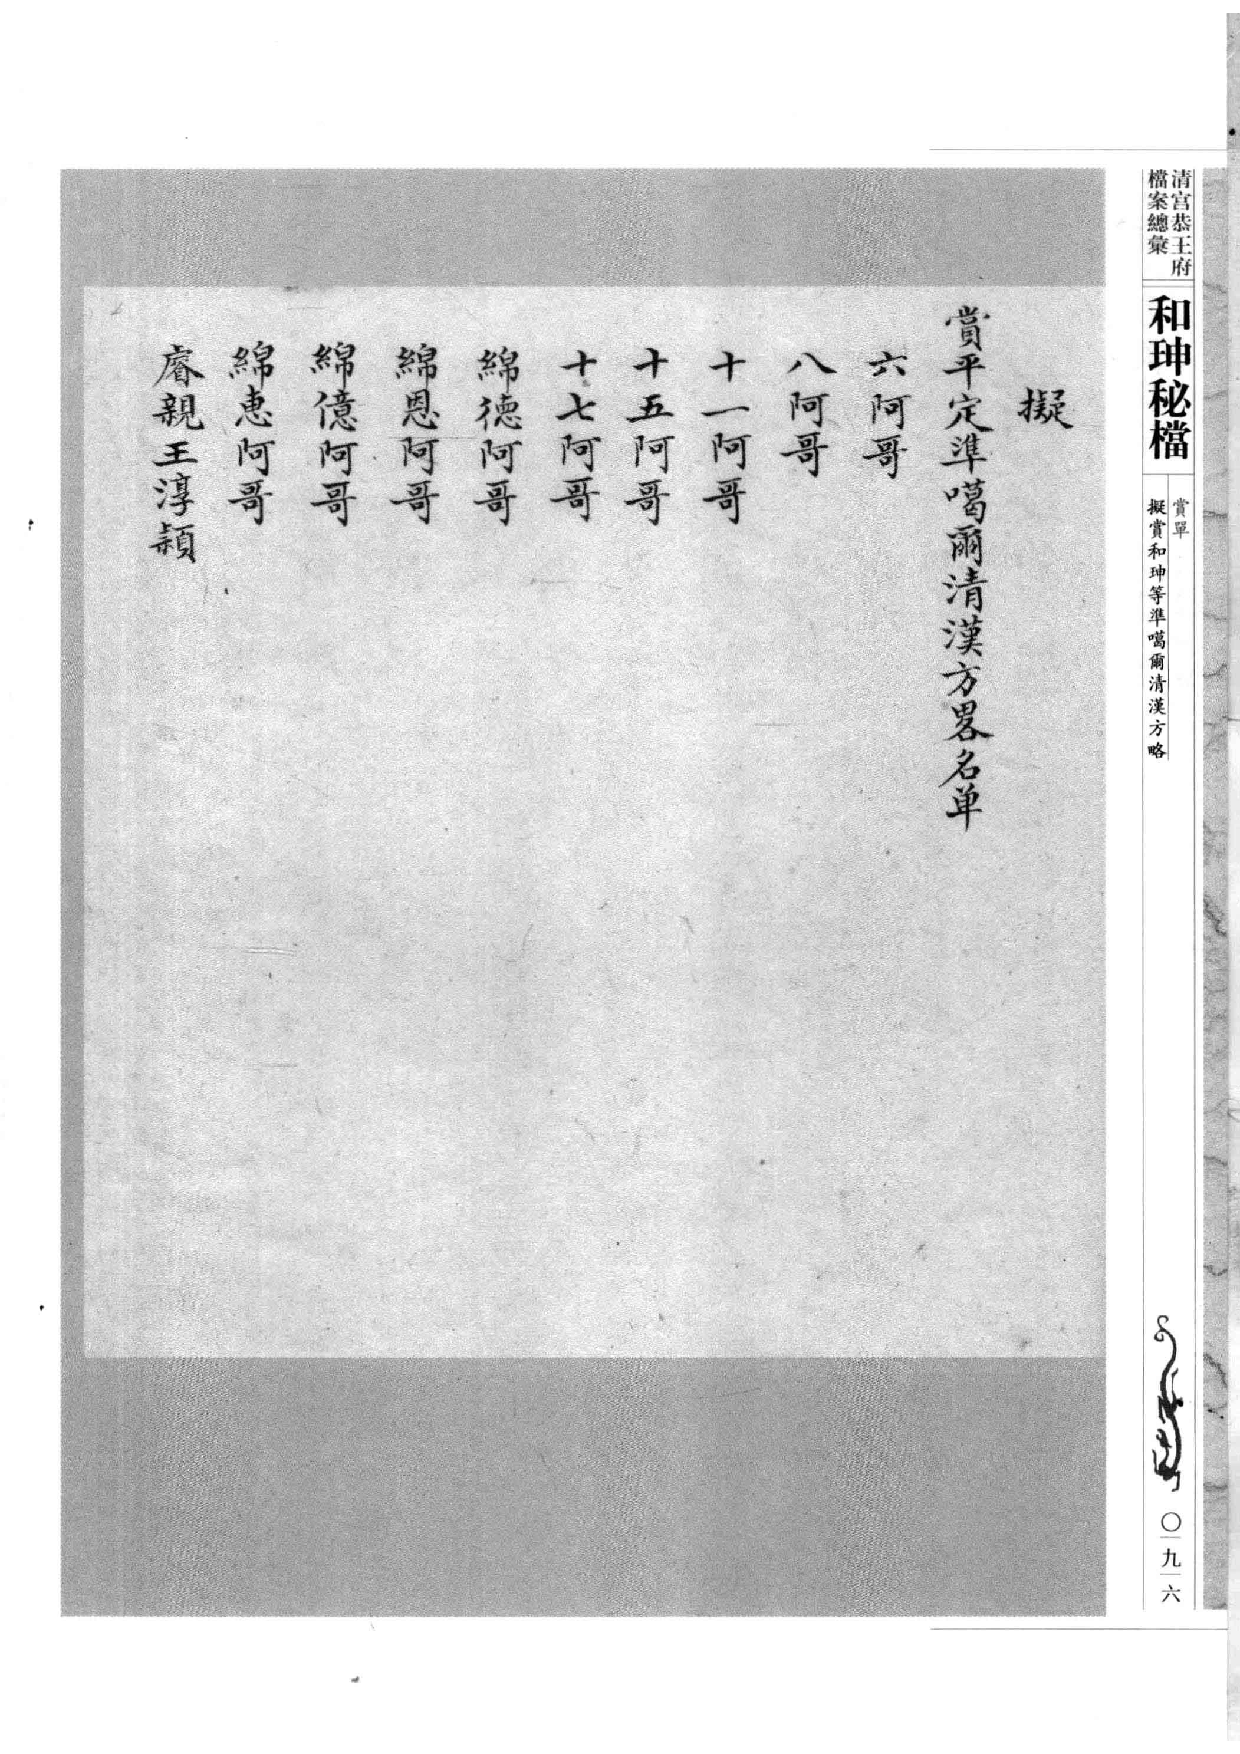 清宮恭王府
檔案總彙
和珅秘檔
賞單
擬賞和珅等準噶爾清漢方略
〇九六
擬
賞平定準噶爾清漢方畧名单
六阿哥
八阿哥
十一阿哥
十五阿哥
十七阿哥
綿德阿哥
綿恩阿哥
綿億阿哥
綿惠阿哥
睿親王淳穎